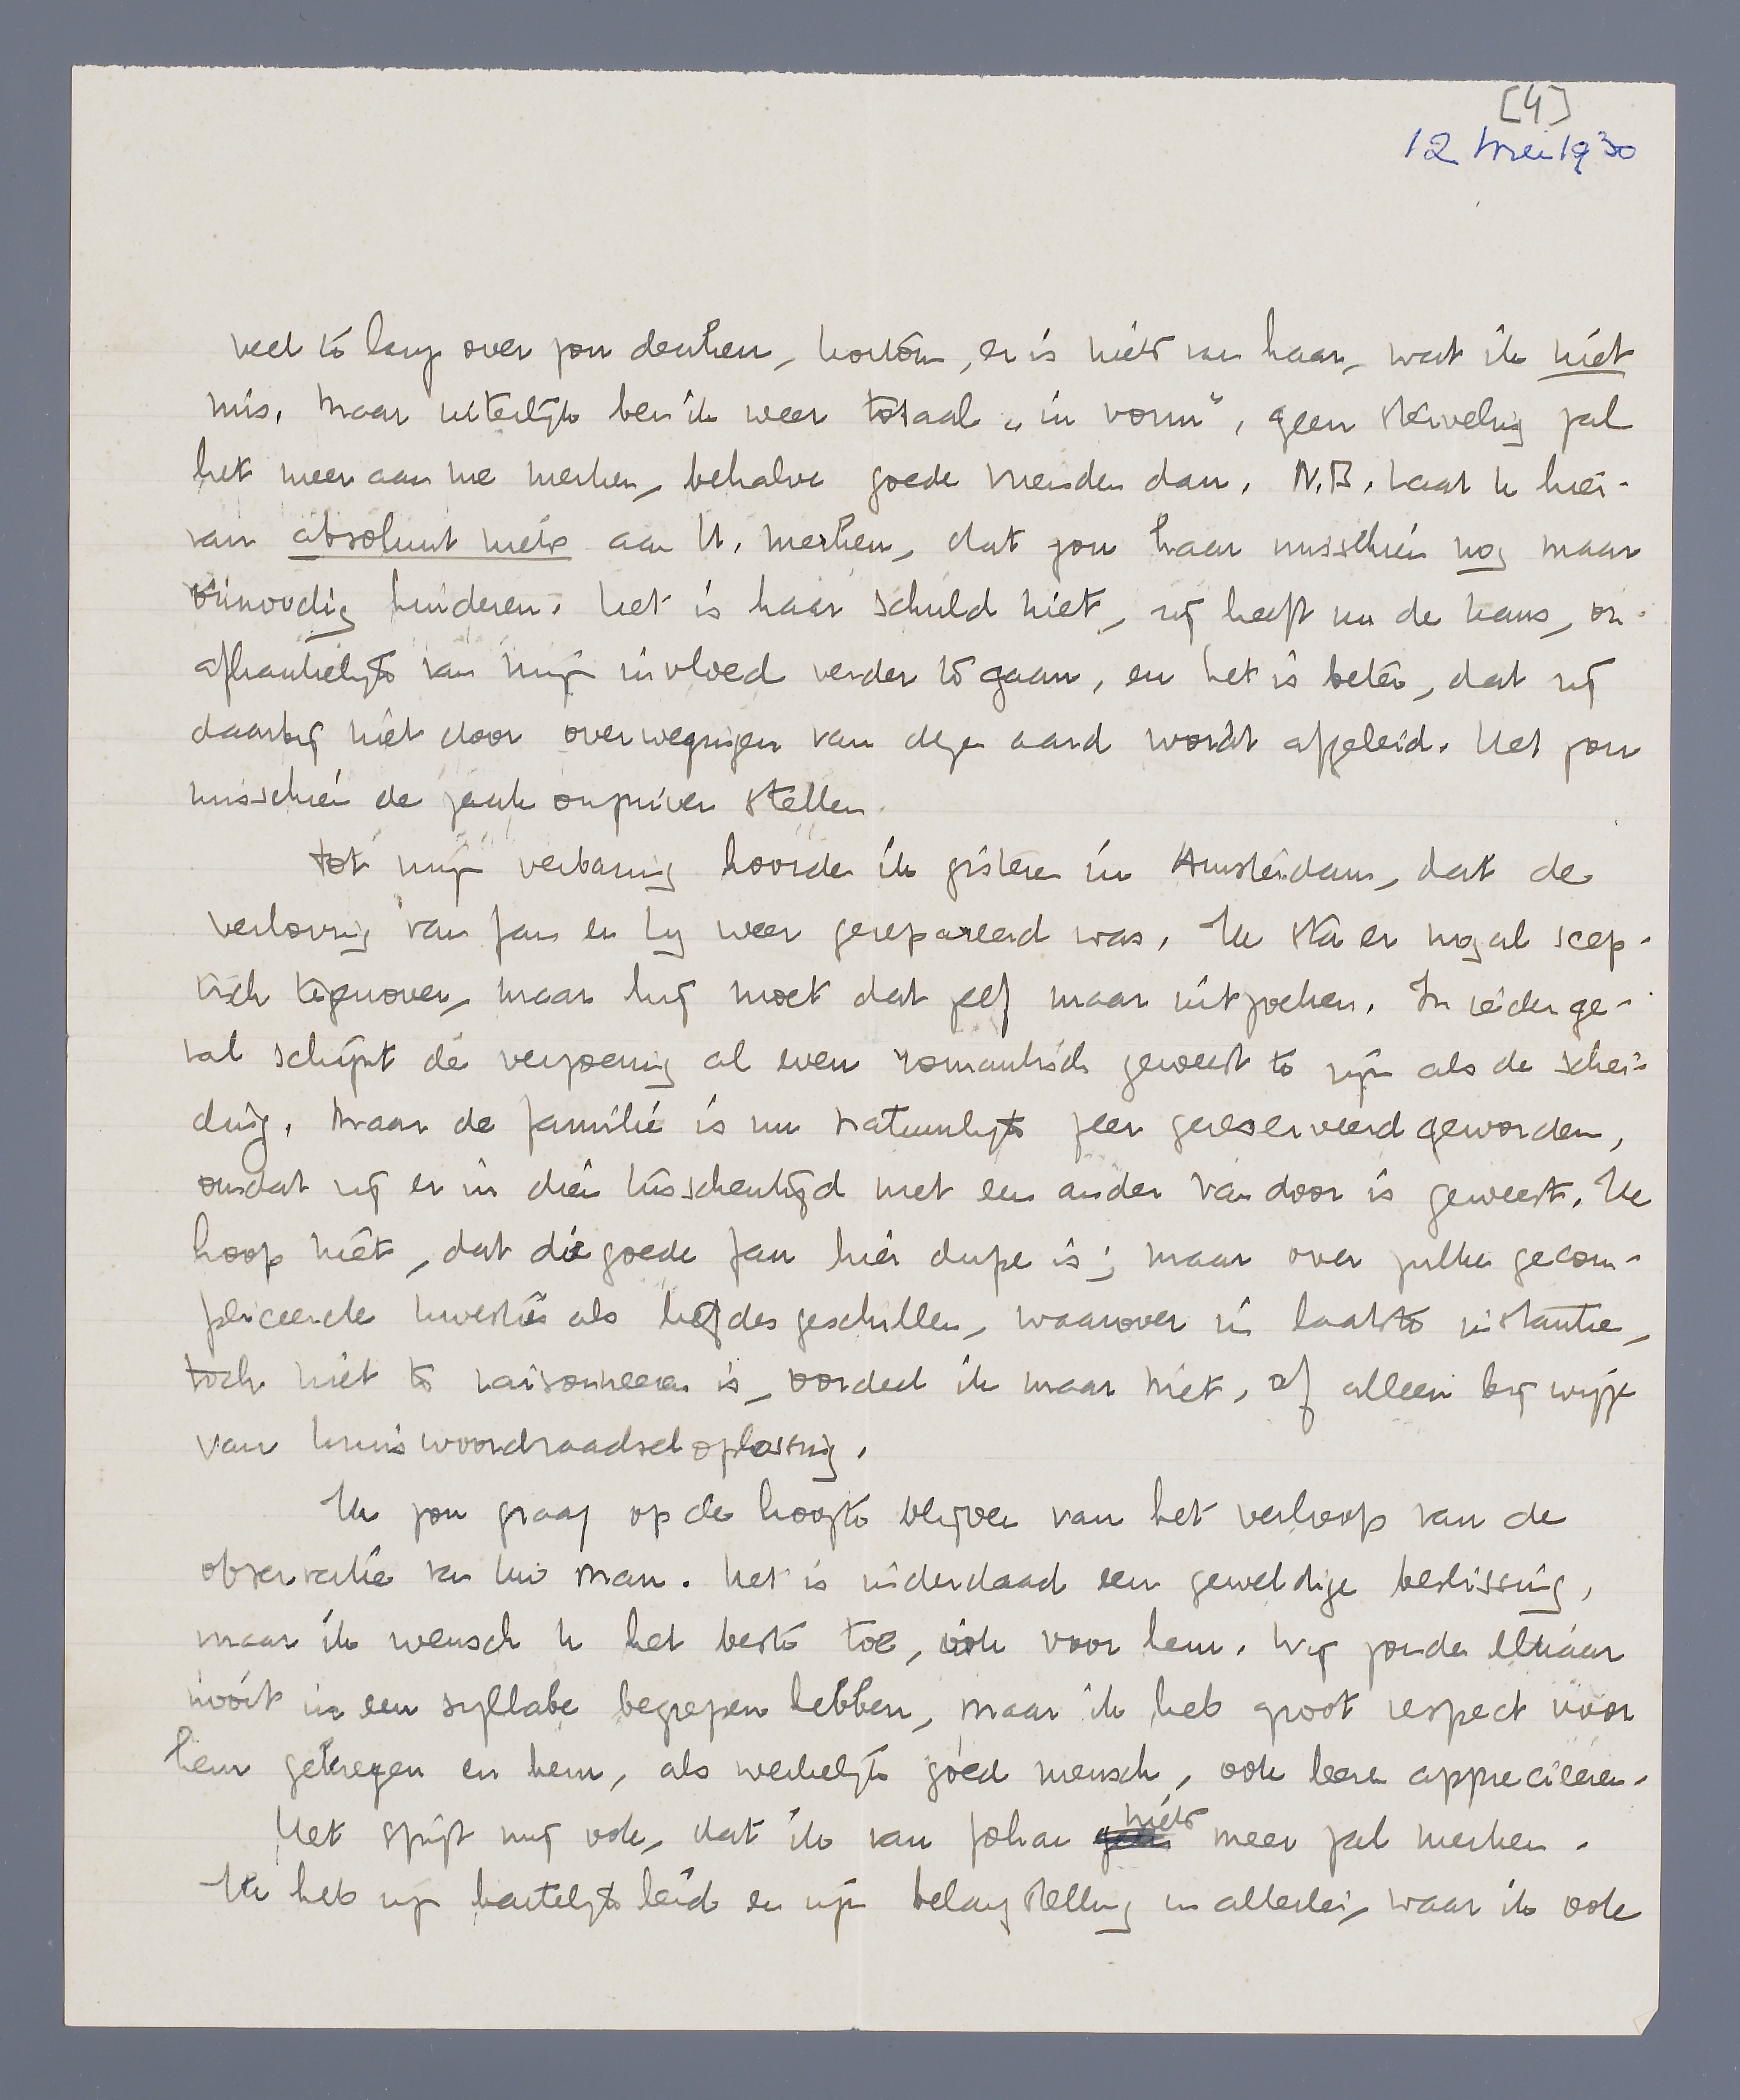 [4]
12 Mei 1930
veel te lang over zou denken, kortom, er is niets van haar, wat ik niet
mis. Maar uiterlijk ben ik weer totaal „in vorm", geen sterveling zal
het meer aan me merken, behalve goede vrienden dan. N.B. Laat U hier-
van absoluut niets aan U. merken, dat zou haar misschien nog maar
onnoodig hinderen. Het is haar schuld niet, zij heeft nu de kans, on-
afhankelijk van mijn invloed verder te gaan, en het is beter, dat zij
daarbij niet door overwegingen van deze aard wordt afgeleid. Het zou
misschien de zaak onzuiver stellen.
Tot mijn verbazing hoorde ik gisteren in Amsterdam, dat de
verloving van Jan en Ly weer gerepareerd was. Ik sta er nogal scep-
tisch tegenover, maar hij moet dat zelf maar uitzoeken. In ieder ge-
val schijnt de verzoening al even romantisch geweest te zijn als de schei-
ding. Maar de familie is nu natuurlijk zeer gereserveerd geworden,
omdat zij er in dien tusschentijd met een ander vandoor is geweest. Ik
hoop niet, dat die goede Jan hier dupe is; maar over zulke gecom-
pliceerde kwesties als liefdesgeschillen, waarover in laatste instantie,
toch niet te raisonneeren is, oordeel ik maar niet, of alleen bij wijze
van kruiswoordraadseloplossing.
Ik zou graag op de hoogte blijven van het verloop van de
observatie van Uw man. Het is inderdaad een geweldige beslissing,
maar ik wensch U het beste toe, óók voor hem. Wij zouden elkaar
nóóit in een syllabe begrepen hebben, maar ik heb groot respect voor
hem gekregen en hem, als werkelijk goed mensch, ook leeren apprecieeren.
Het spijt mij ook, dat ik van Johan niets meer zal merken.
Ik heb zijn hartelijkheid en zijn belangstelling in allerlei, waar ik ook